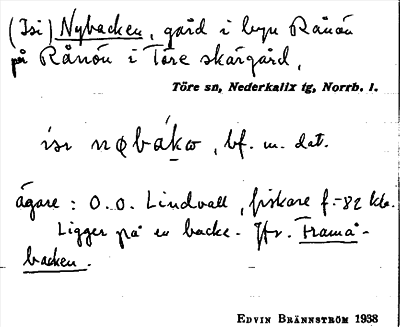 (Isi) Nybacken, gård i byn Rånön
på Rånön i Töre skärgård.
Töre sn, Nederkalix tg, Norrb. l.
isı nøbáko, bf. m. dat.
ägare: O.O. Lindvall, fiskare f.-82 kbo.
Ligger på en backe. Jfr. Framå-
backen.
EDVIN BRÄNNSTRÖM 1938